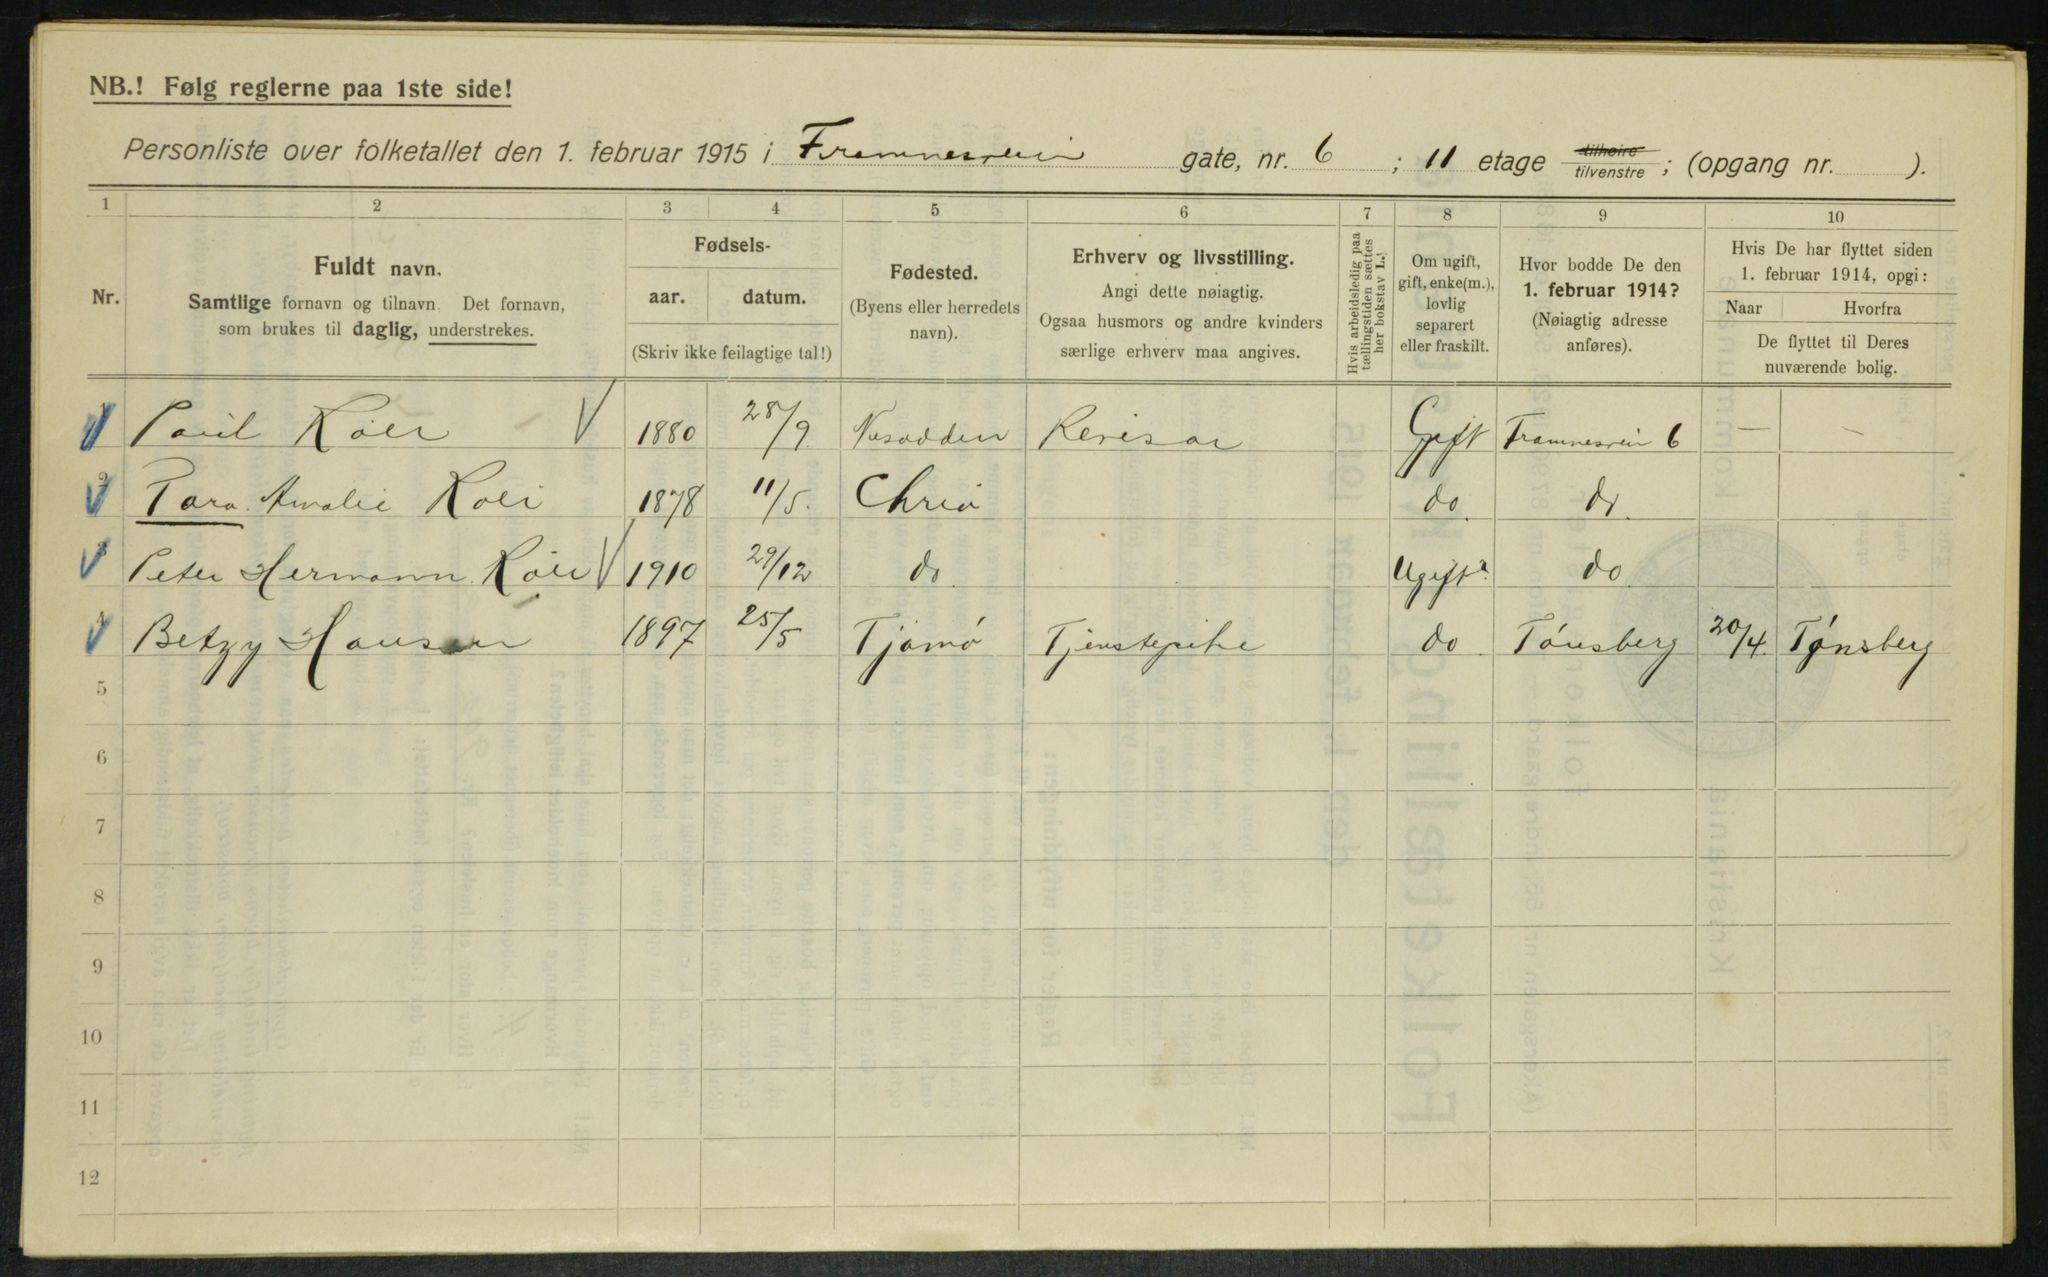 NB.! Følg reglerne paa 1ste side!
Personliste over folketallet den 1. februar 1915 i Framnesvein gate, nr. 6 ; 11 etage tilhøire tilvenstre ; (opgang nr. ).
1 2 3 4 5 6 7 8 9 10
Nr.
Fuldt navn.
Samtlige fornavn og tilnavn. Det fornavn,
som brukes til daglig, understrekes.
Fødsels-
aar. datum.
(Skriv ikke feilagtige tal!)
Fødested.
(Byens eller herredets
navn).
Erhverv og livsstilling.
Angi dette nøiagtig.
Ogsaa husmors og andre kvinders
særlige erhverv maa angives.
Hvis arbeidsledig paa
tællingstiden sættes
her bokstav L.
Om ugift,
gift, enke(m.),
lovlig
separert
eller fraskilt.
Hvor bodde De den
1. februar 1914?
(Nøiagtig adresse
anføres).
Hvis De har flyttet siden
1. februar 1914, opgi:
Naar Hvorfra
De flyttet til Deres
nuværende bolig.
1 Paul Røer 1880 28/9. Nesodden Revisor Gift Framnesvein 6 — —
2 Tora Amalie Røer 1878 11/5. Chria do. do.
3 Peter Hermann Røer 1910 29/12 do Ugift do
4 Betzy Hansen 1897 25/5 Tjømø Tjenstepike do Tønsberg 20/4. Tønsberg
5
6
7
8
9
10
11
12